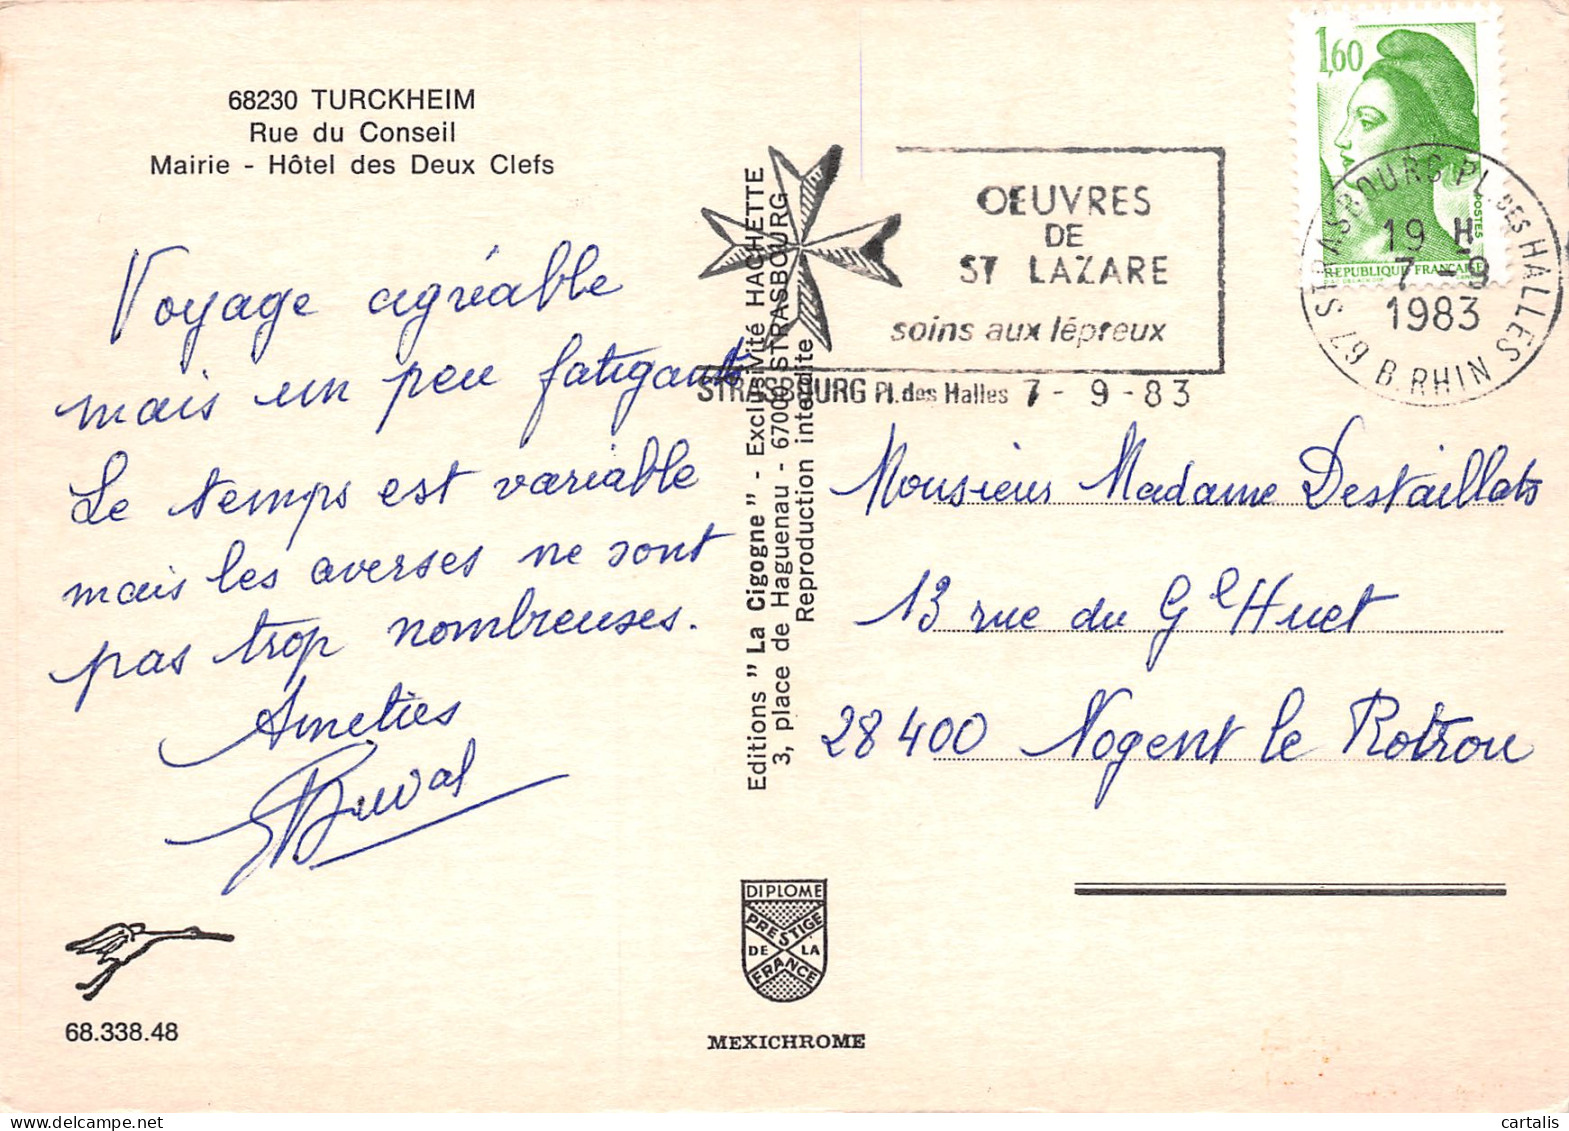 68230 TURCKHEIM
Rue du Conseil
Mairie - Hôtel des Deux Clefs
Voyage agréable
mais un peu fatigant
Le temps est variable
mais les averses ne sont
pas trop nombreuses.
Amitiés
Duval
68.338.48
Editions "La Cigogne" - Exclusivité HACHETTE
3, place de Haguenau - 67000 STRASBOURG
Reproduction interdite
DIPLOME
PRESTIGE
DE LA
FRANCE
MEXICHROME
OEUVRES
DE
ST LAZARE
soins aux lépreux
STRASBOURG Pl. des Halles 7 - 9 - 83
1,60
POSTES
REPUBLIQUE FRANÇAISE
STRASBOURG PL. DES HALLES
19 H
7 - 9
1983
67 B. RHIN
Monsieur Madame Destaillats
13 rue du Gel Huet
28400 Nogent le Rotrou
cartalis